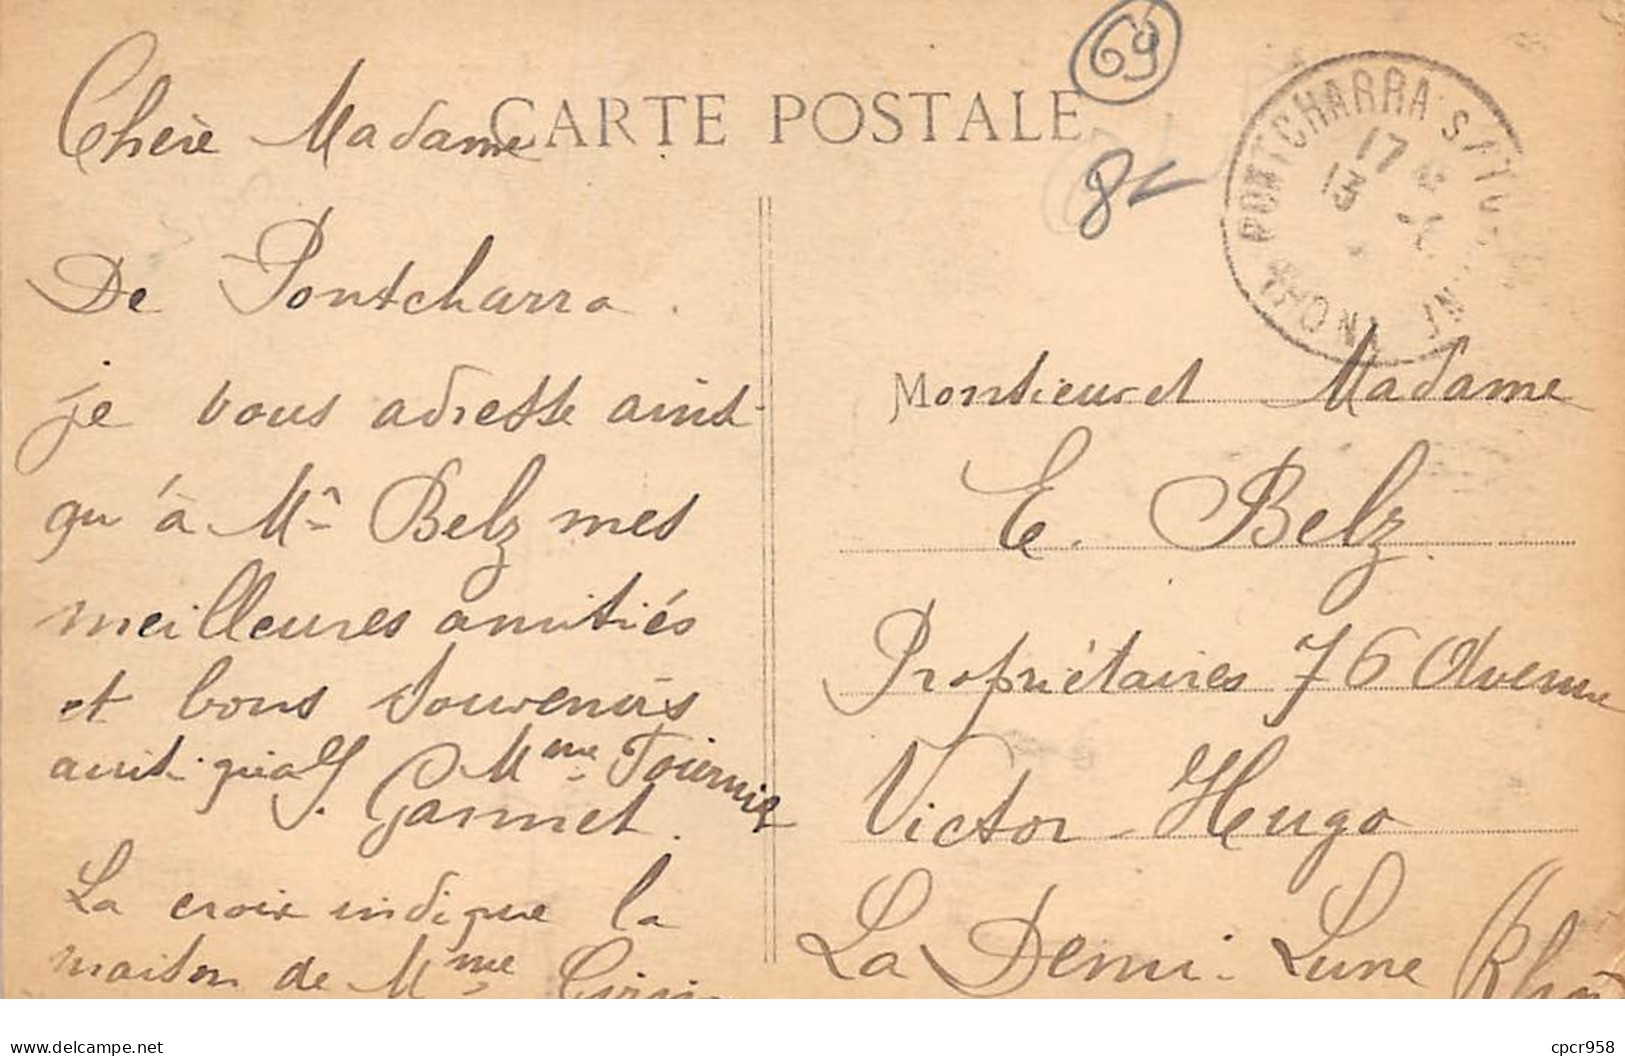 CARTE POSTALE
69
8
PONTCHARRA S/TU
17
13
RHONE
Chère Madame
De Pontcharra.
je vous adresse ainsi
qu'à Mr Belz mes
meilleures amitiés
et bons souvenirs
ainsi qu'à Mme
Garmet.
La croix indique la
maison de Mme
Monsieur et Madame
E. Belz.
Propriétaires 76 Avenue
Victor-Hugo
La Demi-Lune (Rhô
delcampe.net
cpcr958